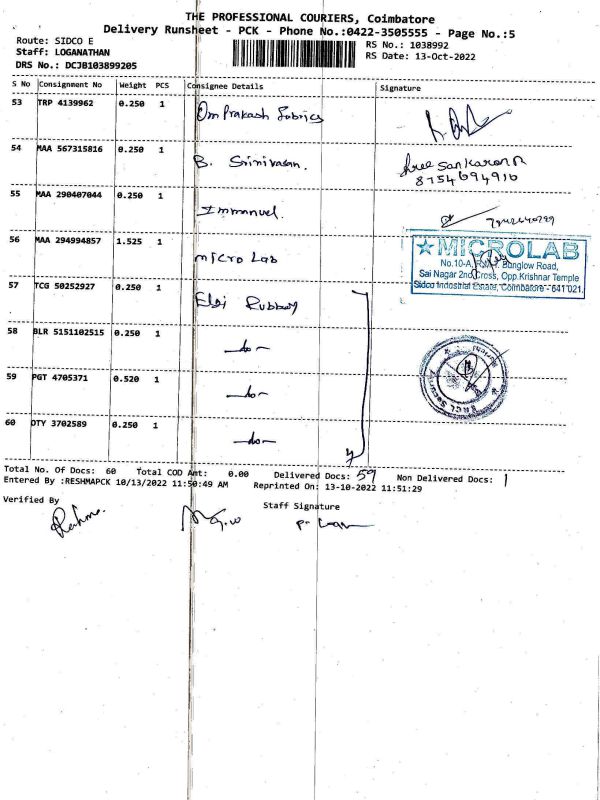 THE PROFESSIONAL COURIERS, Coimbatore
Delivery Runsheet - PCK - Phone No.:0422-3505555 - Page No.:5
Route: SIDCO E
RS No.: 1038992
Staff: LOGANATHAN
RS Date: 13-Oct-2022
DRS No.: DCJB103899205
S No Consignment No Weight PCS Consignee Details Signature
53 TRP 4139962 0.250 1 Om Prakash Fabrics
54 MAA 567315816 0.250 1 B. Srinivasan. Shree Sankaran R
8754694910
55 MAA 290407044 0.250 1 Immanuel.
56 MAA 294994857 1.525 1 Micro Lab
MICROLAB
No.10-A, Bunglow Road,
Sai Nagar 2nd Cross, Opp.Krishnar Temple
Sidco Industrial Estate, Coimbatore - 641 021.
57 TCG 50252927 0.250 1 Elgi Rubber
58 BLR 5151102515 0.250 1 -do-
59 PGT 4705371 0.520 1 -do-
60 DTY 3702589 0.250 1 -do-
Total No. Of Docs: 60 Total COD Amt: 0.00 Delivered Docs: 59 Non Delivered Docs: 1
Entered By :RESHMAPCK 10/13/2022 11:50:49 AM Reprinted On: 13-10-2022 11:51:29
Verified By
Staff Signature